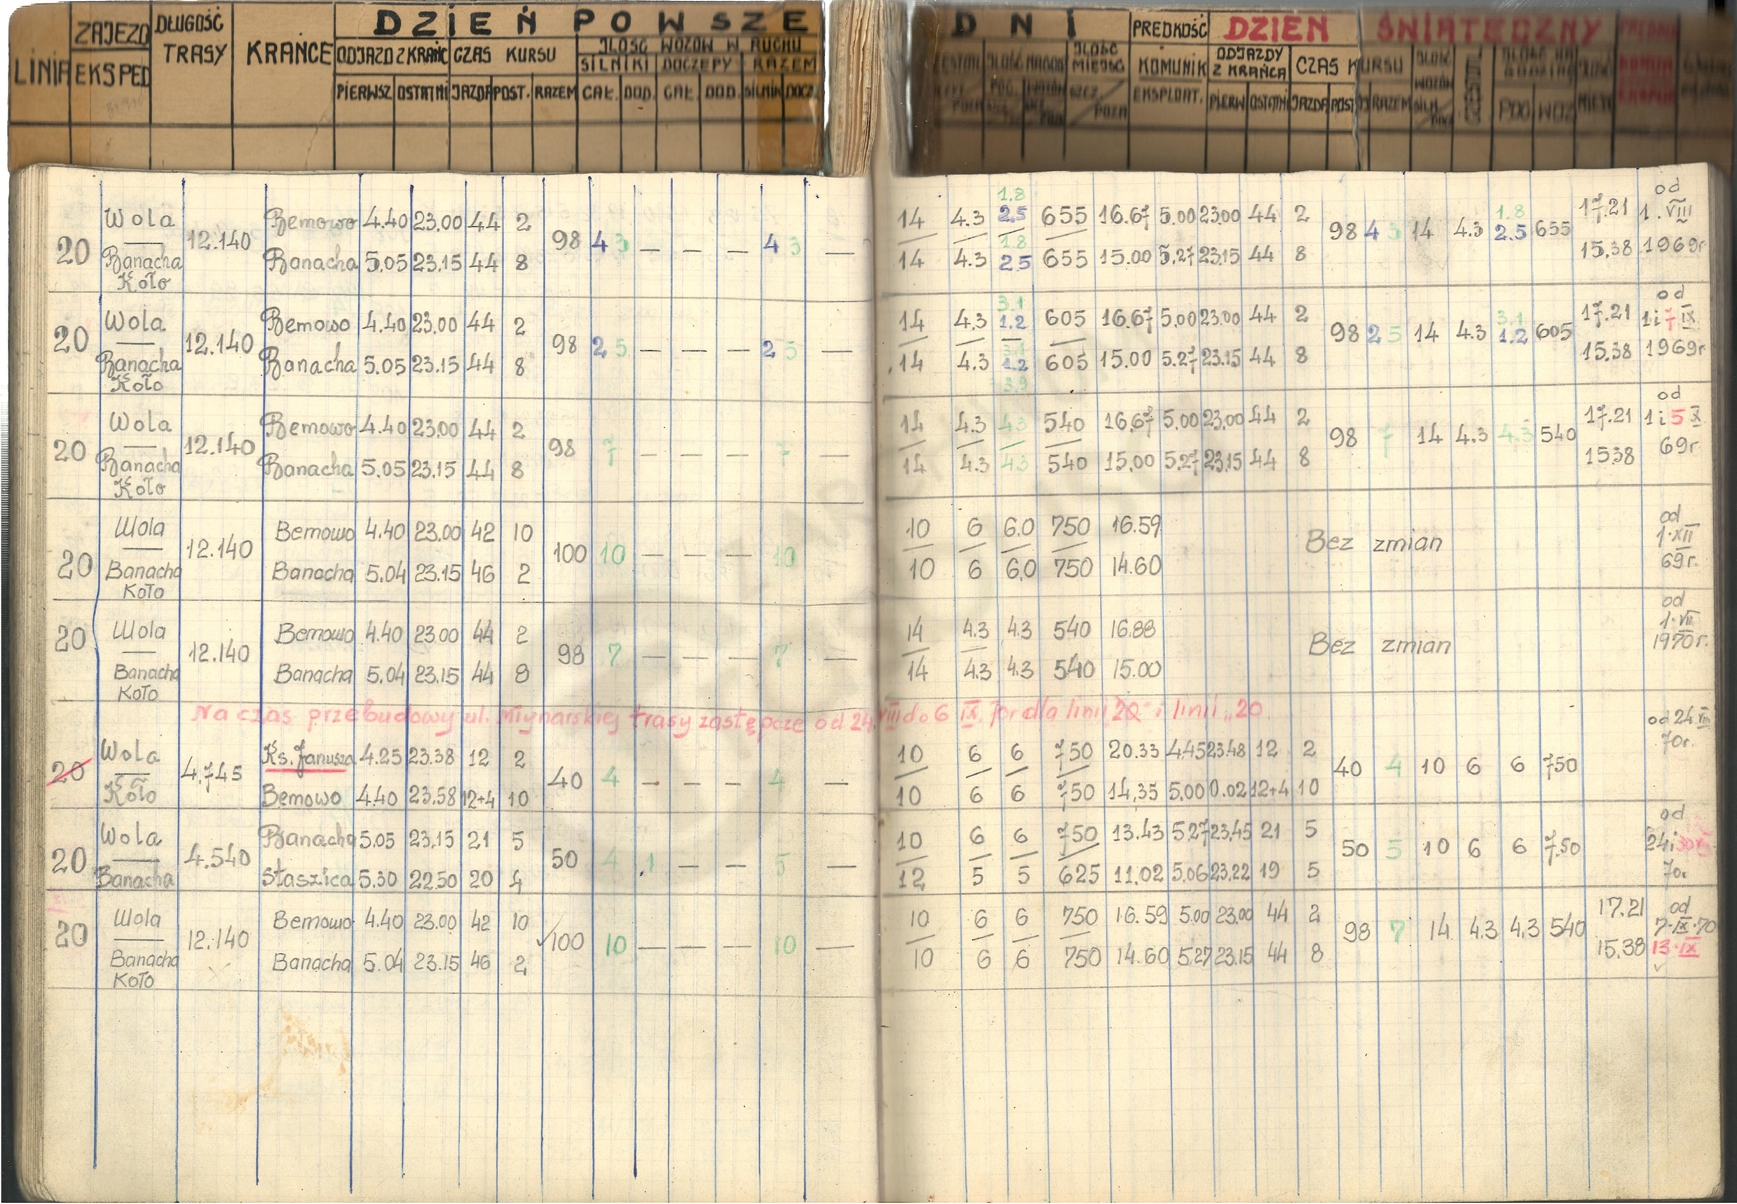 LINIA
ZAJEZD
EKSPED
DŁUGOŚĆ
TRASY
KRAŃCE
DZIEŃ POWSZEDNI
ODJAZD Z KRAŃC
CZAS KURSU
ILOŚĆ WOZÓW W RUCHU
SILNIKI
DOCZEPY
RAZEM
PIERWSZ
OSTATNI
JAZDA
POST.
RAZEM
CAŁ.
DOD.
CAŁ.
DOD.
SILNIK
DOCZ.
ILOŚĆ
MIEJSC
PREDKOŚĆ
KOMUNIK
EKSPLOAT.
DZIEŃ ŚWIĄTECZNY
ODJAZDY
Z KRAŃCA
CZAS KURSU
PIERW
OSTATNI
JAZDA
POST
RAZEM
20 Wola Banacha Koło 12.140 98 4 3 — — — 4 3 —
Bemowo 4.40 23.00 44 2 14 4.3 1.8 2.5 655 16.67 5.00 23.00 44 2 17.21
Banacha 5.05 23.15 44 8 14 4.3 1.8 2.5 655 15.00 5.27 23.15 44 8 15.38
98 4 3 14 4.3 1.8 2.5 655 od 1.VIII 1969r
20 Wola Banacha Koło 12.140 98 2 5 — — — 2 5 —
Bemowo 4.40 23.00 44 2 14 4.3 3.1 1.2 605 16.67 5.00 23.00 44 2 17.21
Banacha 5.05 23.15 44 8 14 4.3 1.2 605 15.00 5.27 23.15 44 8 15.38
98 2 5 14 4.3 3.1 1.2 605 od 1 i 7 IX 1969r
20 Wola Banacha Koło 12.140 98 7 — — — 7 —
Bemowo 4.40 23.00 44 2 14 4.3 4.3 540 16.67 5.00 23.00 44 2 17.21
Banacha 5.05 23.15 44 8 14 4.3 4.3 540 15.00 5.27 23.15 44 8 15.38
98 7 14 4.3 4.3 540 od 1 i 5 X 69r.
20 Wola Banacha Koło 12.140 100 10 — — — 10 —
Bemowo 4.40 23.00 42 10 10 6 6.0 750 16.59
Banacha 5.04 23.15 46 2 10 6 6.0 750 14.60
Bez zmian od 1.XII 69r.
20 Wola Banacha Koło 12.140 98 7 — — — 7 —
Bemowo 4.40 23.00 44 2 14 4.3 4.3 540 16.88
Banacha 5.04 23.15 44 8 14 4.3 4.3 540 15.00
Bez zmian od 1.VII 1970r.
Na czas przebudowy ul. Młynarskiej trasy zastępcze od 24 VIII do 6 IX
20 Wola Koło 4.745 40 4 — — — 4 —
Ks. Janusza 4.25 23.38 12 2 10 6 6 750 20.33 4.45 23.48 12 2
Bemowo 4.40 23.58 12+4 10 10 6 6 750 14.35 5.00 0.02 12+4 10
40 4 10 6 6 750 od 24 VIII 70r.
20 Wola Banacha 4.540 50 4 1 — — 5 —
Banacha 5.05 23.15 21 5 10 6 6 750 13.43 5.27 23.45 21 5
Staszica 5.30 22.50 20 4 12 5 5 625 11.02 5.06 23.22 19 5
50 5 10 6 6 750 od 24 i 70r
20 Wola Banacha Koło 12.140 100 10 — — — 10 —
Bemowo 4.40 23.00 42 10 10 6 6 750 16.59 5.00 23.00 44 2 17.21
Banacha 5.04 23.15 46 2 10 6 6 750 14.60 5.27 23.15 44 8 15.38
98 7 14 4.3 4.3 540 od 7.IX.70 13.IX